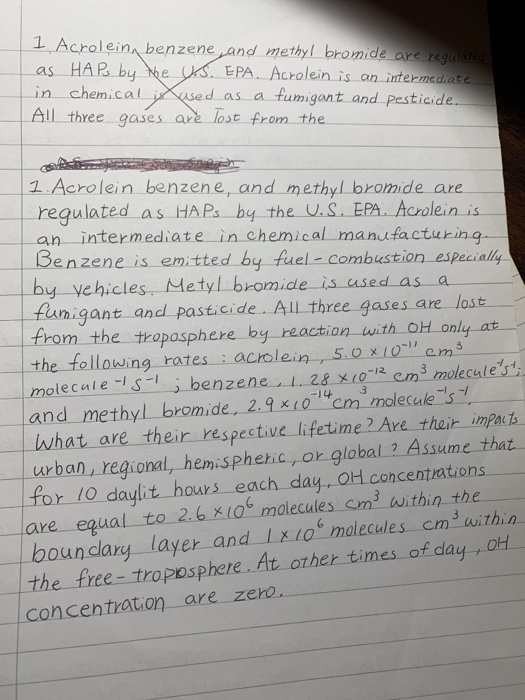 1. Acrolein, benzene, and methyl bromide are regulated
as HAPs by the U.S. EPA. Acrolein is an intermediate
in chemical is used as a fumigant and pesticide.
All three gases are lost from the
1. Acrolein benzene, and methyl bromide are
regulated as HAPs by the U.S. EPA. Acrolein is
an intermediate in chemical manufacturing.
Benzene is emitted by fuel-combustion especially
by vehicles. Metyl bromide is used as a
fumigant and pasticide. All three gases are lost
from the troposphere by reaction with OH only at
the following rates : acrolein, 5.0 x 10⁻¹¹ cm³
molecule⁻¹ s⁻¹ ; benzene, 1.28 x 10⁻¹² cm³ molecule⁻¹s⁻¹;
and methyl bromide, 2.9 x 10⁻¹⁴ cm³ molecule⁻¹s⁻¹.
What are their respective lifetime? Are their impacts
urban, regional, hemispheric, or global ? Assume that
for 10 daylit hours each day, OH concentrations
are equal to 2.6 x 10⁶ molecules cm³ within the
boundary layer and 1 x 10⁶ molecules cm³ within
the free-troposphere. At other times of day, OH
concentration are zero.